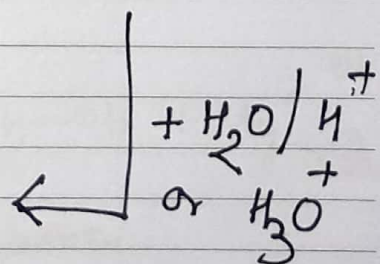 + H₂O / H⁺
or H₃O⁺